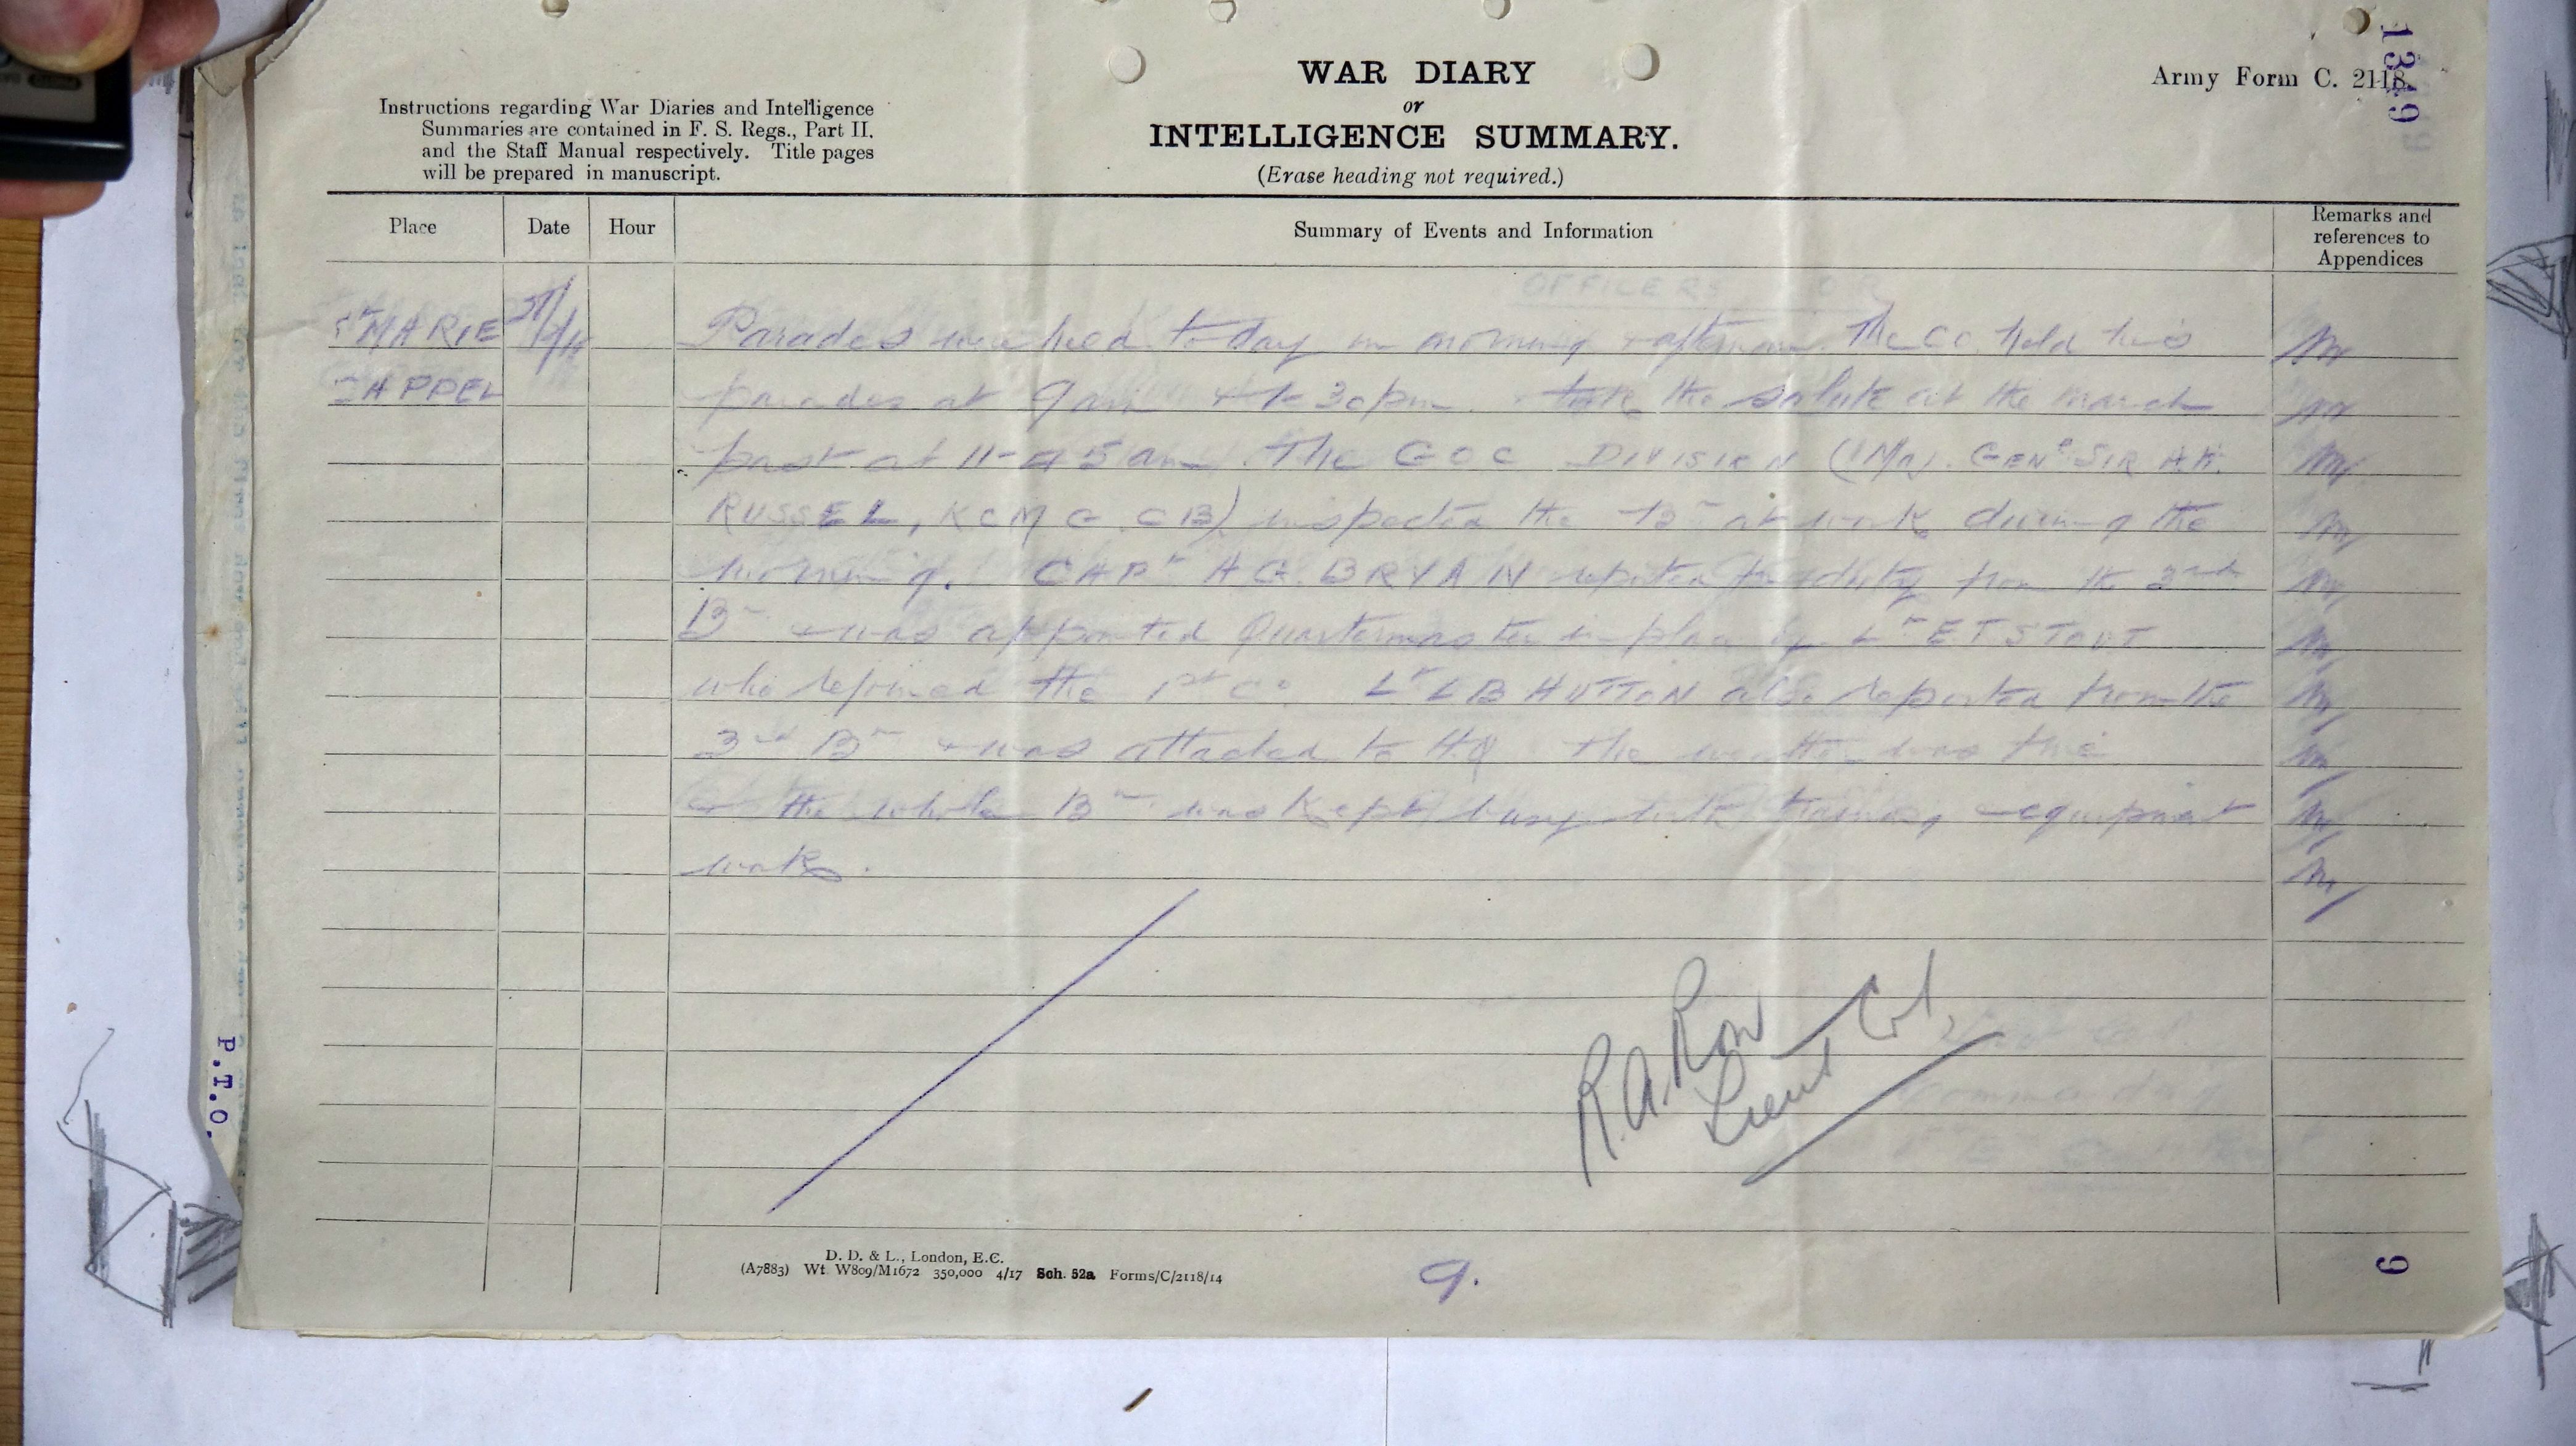 WAR DIARY
or
INTELLIGENCE SUMMARY.
(Erase heading not required.)
Army Form C. 2118.
1349
Instructions regarding War Diaries and Intelligence
Summaries are contained in F. S. Regs., Part II.
and the Staff Manual respectively. Title pages
will be prepared in manuscript.
Place
Date
Hour
Summary of Events and Information
Remarks and
references to
Appendices
OFFICERS OR
Sᵗ MARIE Parades were held today in morning & afternoon. The CO held his
CAPPEL parades at 9am & 1-30pm. the salute at the march
past at 11-45am. The GOC DIVISION (Maj. Genˡ Sir A.H.
RUSSEL, KCMG. CB) inspected the Bⁿ at work during the
morning. CAPᵗ A G. BRYAN reported for duty from the 3rd
Bⁿ & was appointed Quartermaster in place of Lᵗ E T STOUT
who rejoined the 1st Co. Lᵗ L B HUTTON also reported from the
3rd Bⁿ & was attached to HQ. The weather was
& the whole Bⁿ was kept busy with training & equipment
work.
R.A. Row
Lieut Col.
Commanding
P.T.O.
D. D. & L., London, E.C.
(A7883) Wt. W809/M1672 350,000 4/17 Sch. 52a Forms/C/2118/14
9.
9